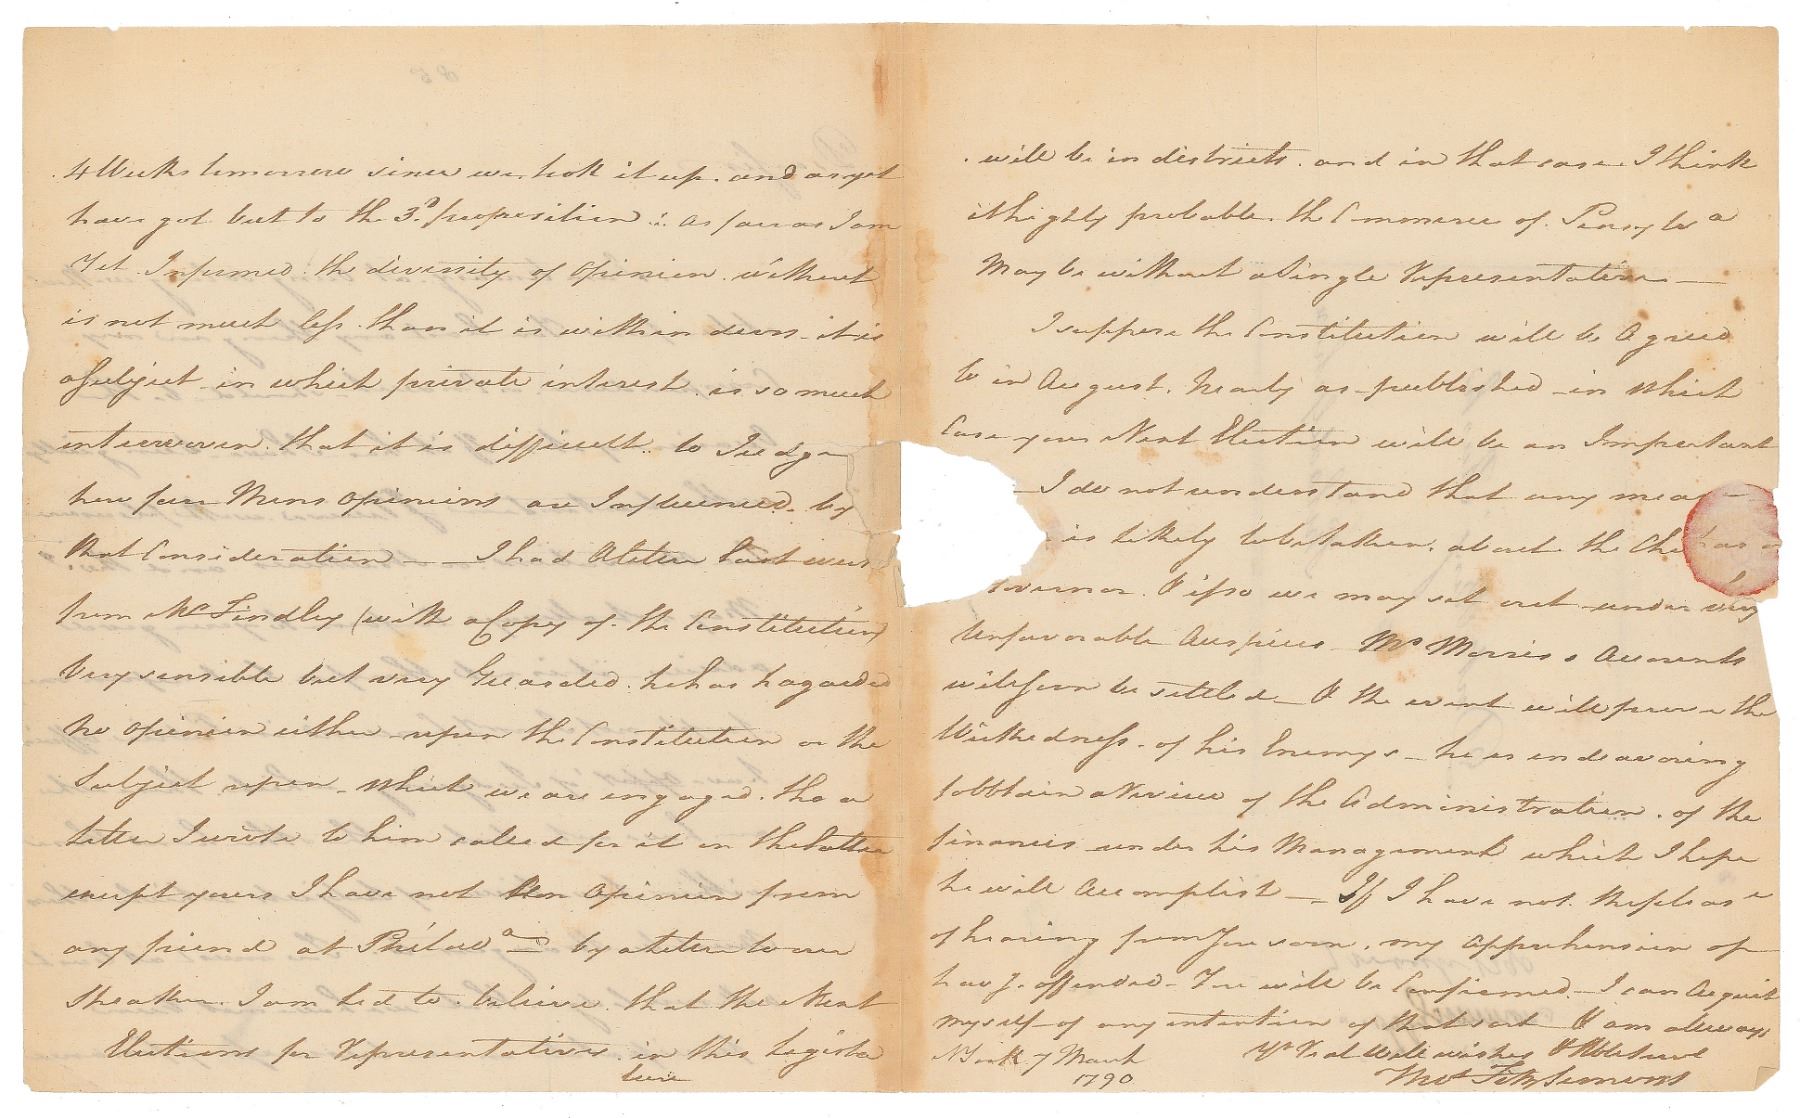 4 Weeks tomorrow since we took it up. and as yet
have got but to the 3.d proposition : as far as I am
Yet Informed. the diversity of Opinion without
is not much less than it is within doors. it is
a Subject in which private interest is so much
interwoven. that it is difficult. to Judge
how far Mens Opinions are Influenced. by
that Consideration — — I had a letter last week
from Mr Findley (with a Copy of the Constitution)
Very sensible but very Guarded. he has hazarded
no Opinion either upon the Constitution or the
Subject upon which we are engaged. tho a
letter I wrote to him called for it on the latter
except yours I have not an Opinion from
any friend at Philada — by a letter to our
Speaker. I am led to believe that the Next
Elections for Representatives in this Legisla
ture
will be in districts. and in that case I think
it highly probable the Commerce of Pensylva
May be without a Single Representative —
I suppose the Constitution will be Agreed
to in August. Nearly as published in which
Case your Next Election will be an Important
I do not understand that any mea
is likely to be taken. about the
overnor. & if so we may set out under very
Unfavorable Auspices Mr Morris s Accounts
will soon be settled — & the event will prove the
Wickedness of his Enemys — he is endeavoring
to obtain a Review of the Administration. of the
finances under his Management which I hope
he will Accomplish — If I have not the please
of hearing from You soon, my Apprehension of
havg. offended You will be Confirmed. I can Acquit
myself of any intention of that sort & am always
Yr Real Well wisher &
Thos FitzSimons
N York 7 March
1790